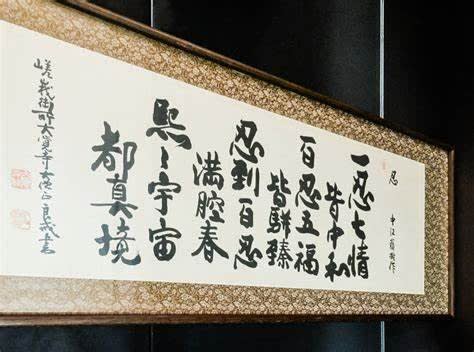 忍
中江藤樹作
一忍七情
皆中和
再忍五福
皆駢臻
忍到百忍
満腔春
熙々宇宙
都真境
嵯峨御所大覚寺